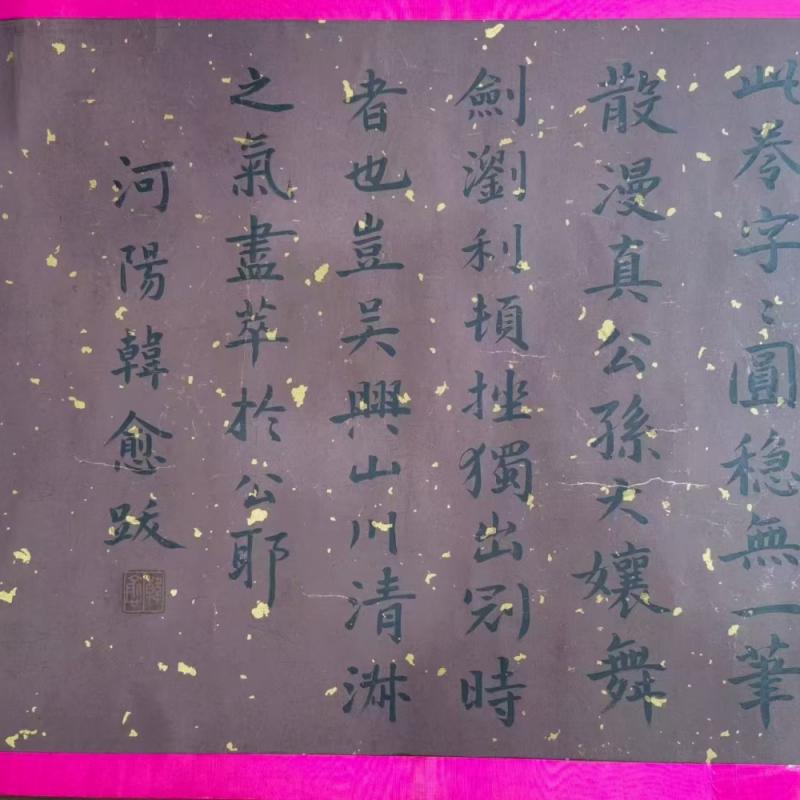 此卷字〻圓穏無一筆
散漫真公孫大孃舞
劍瀏利頓挫獨出冠時
者也豈吴興山川清淋
之氣盡萃於公耶
河陽韓愈跋